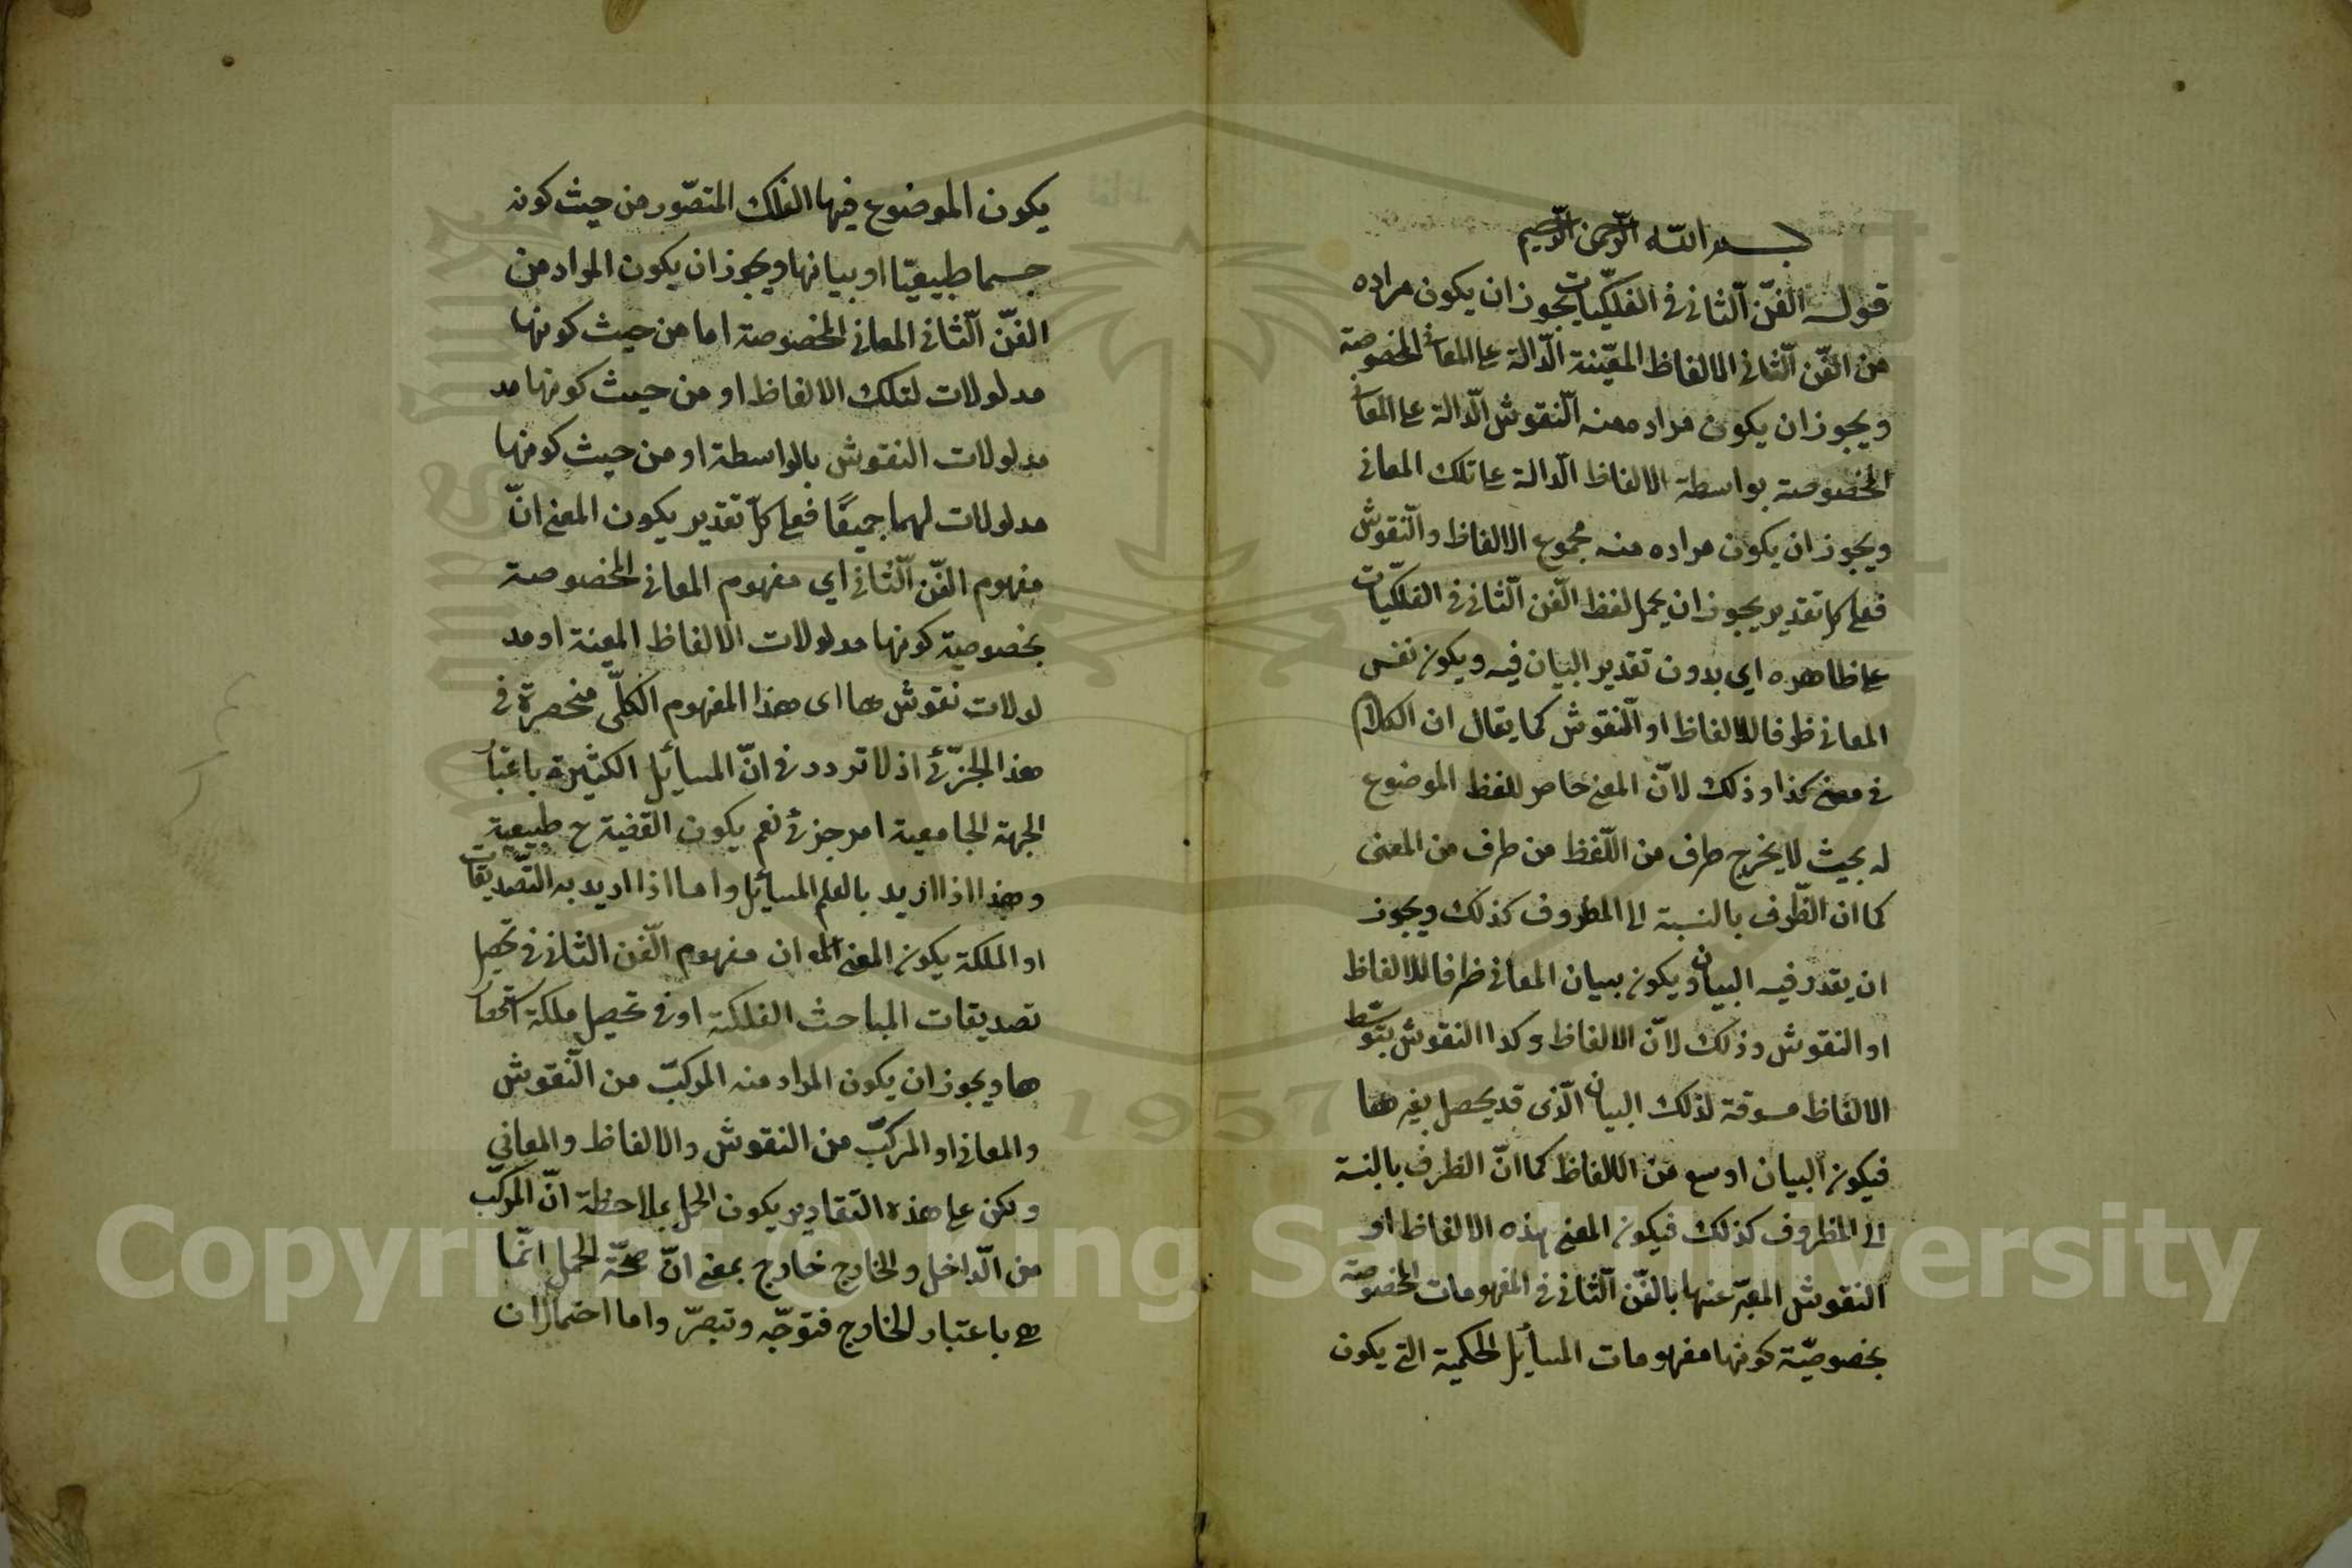 بسم الله الرحمن الرحيم
قوله الفنّ الثاني في الفلكيّات يجوز ان يكون مراده
من الفنّ الثاني الالفاظ المعيّنة الدّالة على المعاني المخصوصة
ويجوز ان يكون مراده منه النّقوش الدّالة على المعاني
المخصوصة بواسطة الالفاظ الدّالة على تلك المعاني
ويجوز ان يكون مراده منه مجموع الالفاظ والنّقوش
فعلى كل تقدير يجوز ان يحمل لفظ الفن الثاني في الفلكيّات
على ظاهره اي بدون تقدير البيان فيه ويكون نفس
المعاني ظرفا للالفاظ او النّقوش كما يقال ان الكلام
في معنى كذا وذلك لانّ المعنى حاصر للفظ الموضوع
له بحيث لا يخرج طرف من اللّفظ من طرف من المعنى
كما ان الظّرف بالنسبة الى المظروف كذلك ويجوز
ان يقدر فيه البيان ويكون بيان المعاني ظرفا للالفاظ
او النقوش وذلك لانّ الالفاظ وكدا النقوش بتوسّط
الالفاظ مسوقة لذلك البيان الّذى قد يحصل بغيرها
فيكون البيان اوسع من الالفاظ كما انّ الظرف بالنسبة
الى المظروف كذلك فيكون المعنى هذه الالفاظ او
النقوش المعبّر عنها بالفّن الثاني في المفهومات المخصوصة
بخصوصيّة كونها مفهومات المسائل الحكمية التي يكون
يكون الموضوع فيها الفلك المتصّور من حيث كونه
جسما طبيعيّا او بيانها ويجوز ان يكون المراد من
الفنّ الثّاني المعاني المخصوصة اما من حيث كونها
مدلولات لتلك الالفاظ او من حيث كونها مد
مدلولات النقوش بالواسطة او من حيث كونها
مدلولات لهما جميعًا فعلى كلّ تقدير يكون المعنى انّ
مفهوم الفّن الثّاني اي مفهوم المعاني المخصوصة
بخصوصية كونها مدلولات الالفاظ المعينة او مد
لولات نقوشها اى هذا المفهوم الكلّى منحصرة في
هذا الجزّئ اذ لا تردد في انّ المسايل الكثيرة باعتبار
الجهة الجامعية امر جزئ نعم يكون القضية ح طبيعية
وهذا اذا اريد بالعلم المسائل واما اذا اريد به التّصديقات
او الملكة يكون المعنى ان مفهوم الّفن الثاني في تحصيل
تصديقات المباحث الفلكية او في تحصيل ملكة استحضار
ها ويجوز ان يكون المراد منه المركبّ من النّقوش
والمعاني او المركبّ من النقوش والالفاظ والمعاني
ولكن على هذه التقادير يكون الحمل بملاحظة انّ المركّب
من الدّاخل والخارج خارج بمعنى انّ صحّة الحمل انّما
هى باعتبار الخارج فتوجّه وتبصّر واما احتمال ان
Copyright © King Saud University
1957